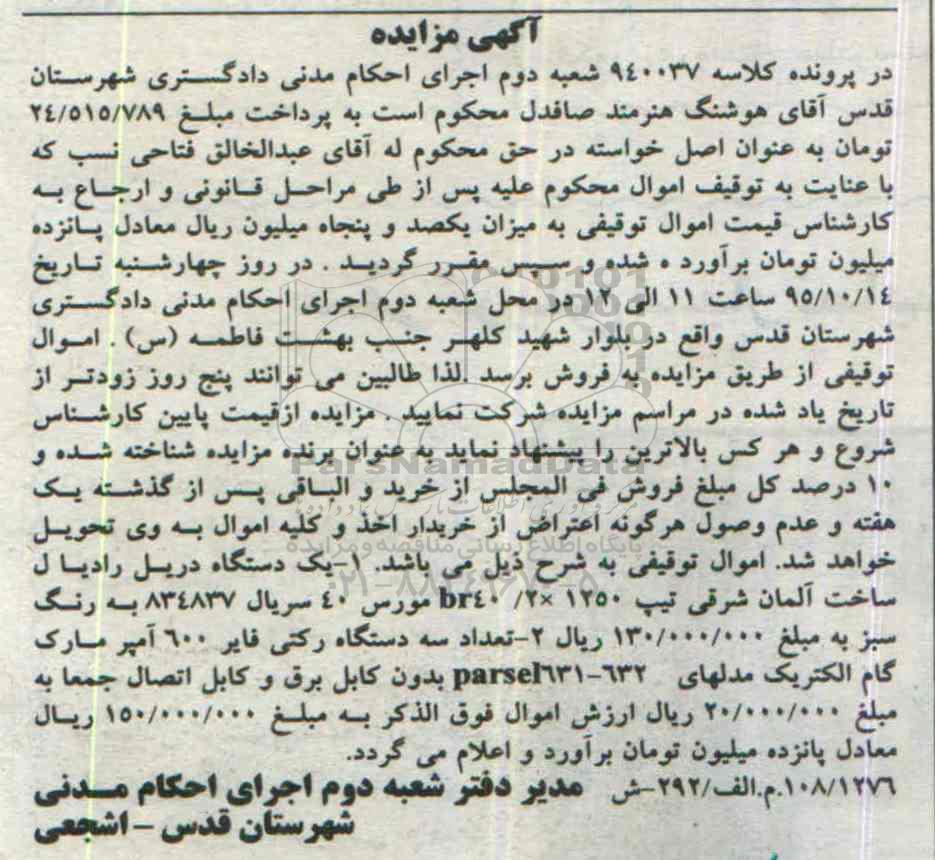 آگهی مزایده
در پرونده کلاسه ۹٤۰۰۳۷ شعبه دوم اجرای احکام مدنی دادگستری شهرستان
قدس آقای هوشنگ هنرمند صافدل محکوم است به پرداخت مبلغ ۲٤/۵۱۵/۷۸۹
تومان به عنوان اصل خواسته در حق محکوم له آقای عبدالخالق فتاحی نسب که
با عنایت به توقیف اموال محکوم علیه پس از طی مراحل قانونی و ارجاع به
کارشناس قیمت اموال توقیفی به میزان یکصد و پنجاه میلیون ریال معادل پانزده
میلیون تومان برآورد ه شده و سپس مقرر گردید . در روز چهارشنبه تاریخ
۹۵/۱۰/۱٤ ساعت ۱۱ الی ۱۲ در محل شعبه دوم اجرای احکام مدنی دادگستری
شهرستان قدس واقع در بلوار شهید کلهر جنب بهشت فاطمه (س) . اموال
توقیفی از طریق مزایده به فروش برسد لذا طالبین می توانند پنج روز زودتر از
تاریخ یاد شده در مراسم مزایده شرکت نمایید . مزایده ازقیمت پایین کارشناس
شروع و هر کس بالاترین را پیشنهاد نماید به عنوان برنده مزایده شناخته شده و
۱۰ درصد کل مبلغ فروش فی المجلس از خرید و الباقی پس از گذشته یک
هفته و عدم وصول هرگونه اعتراض از خریدار اخذ و کلیه اموال به وی تحویل
خواهد شد. اموال توقیفی به شرح ذیل می باشد. ۱-یک دستگاه دریل رادیا ل
ساخت آلمان شرقی تیپ br٤۰ /۲× ۱۲۵۰ مورس ٤۰ سریال ۸۳٤۸۳۷ به رنگ
سبز به مبلغ ۱۳۰/۰۰۰/۰۰۰ ریال ۲-تعداد سه دستگاه رکتی فایر ٦۰۰ آمپر مارک
گام الکتریک مدلهای parsel٦۳۱-٦۳۲ بدون کابل برق و کابل اتصال جمعا به
مبلغ ۲۰/۰۰۰/۰۰۰ ریال ارزش اموال فوق الذکر به مبلغ ۱۵۰/۰۰۰/۰۰۰ ریال
معادل پانزده میلیون تومان برآورد و اعلام می گردد.
۱۰۸/۱۲۷٦.م.الف/۲۹۲-ش مدیر دفتر شعبه دوم اجرای احکام مدنی
شهرستان قدس – اشجعی
ParsNamadData
پایگاه اطلاع رسانی مناقصه و مزایده